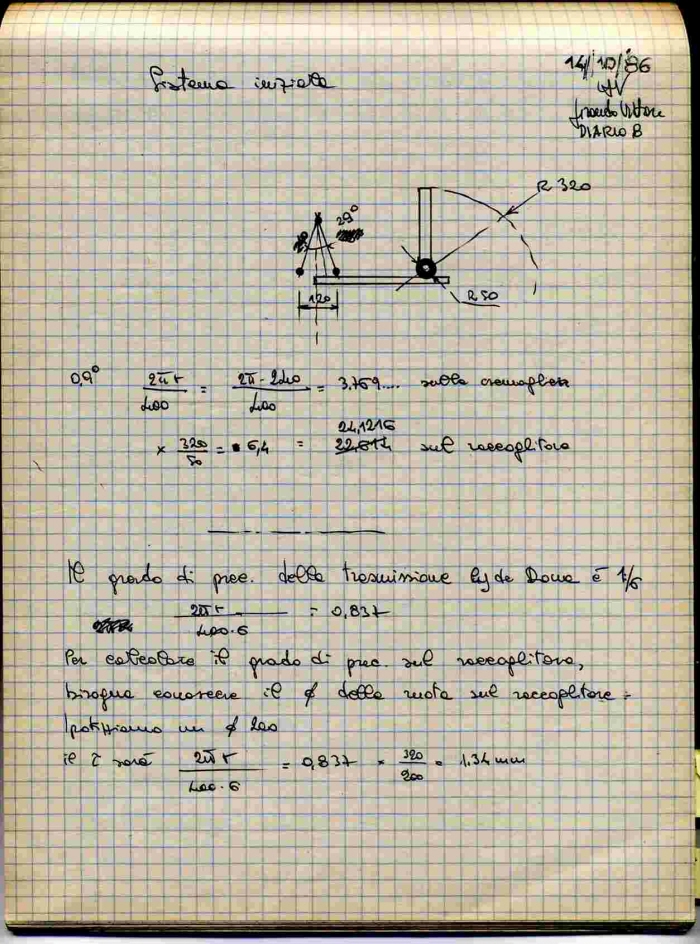 Sistema iniziale
14/10/86
DIARIO B
R 320
29°
R50
120
0,9° 2πr/400 = 2π·240/400 = 3,769.... sulla cremagliera
24,1216
× 320/50 = 6,4 = 22,614 sul raccoglitore
Il grado di prec. della trasmissione Ly de Dona è 1/6
2πr/400·6 = 0,837
Per calcolare il grado di prec. sul raccoglitore,
bisogna conoscere il ϕ della ruota sul raccoglitore -
Ipotizziamo un ϕ 200
il τ sarà 2πr/400·6 = 0,837 × 320/200 = 1.34 mm